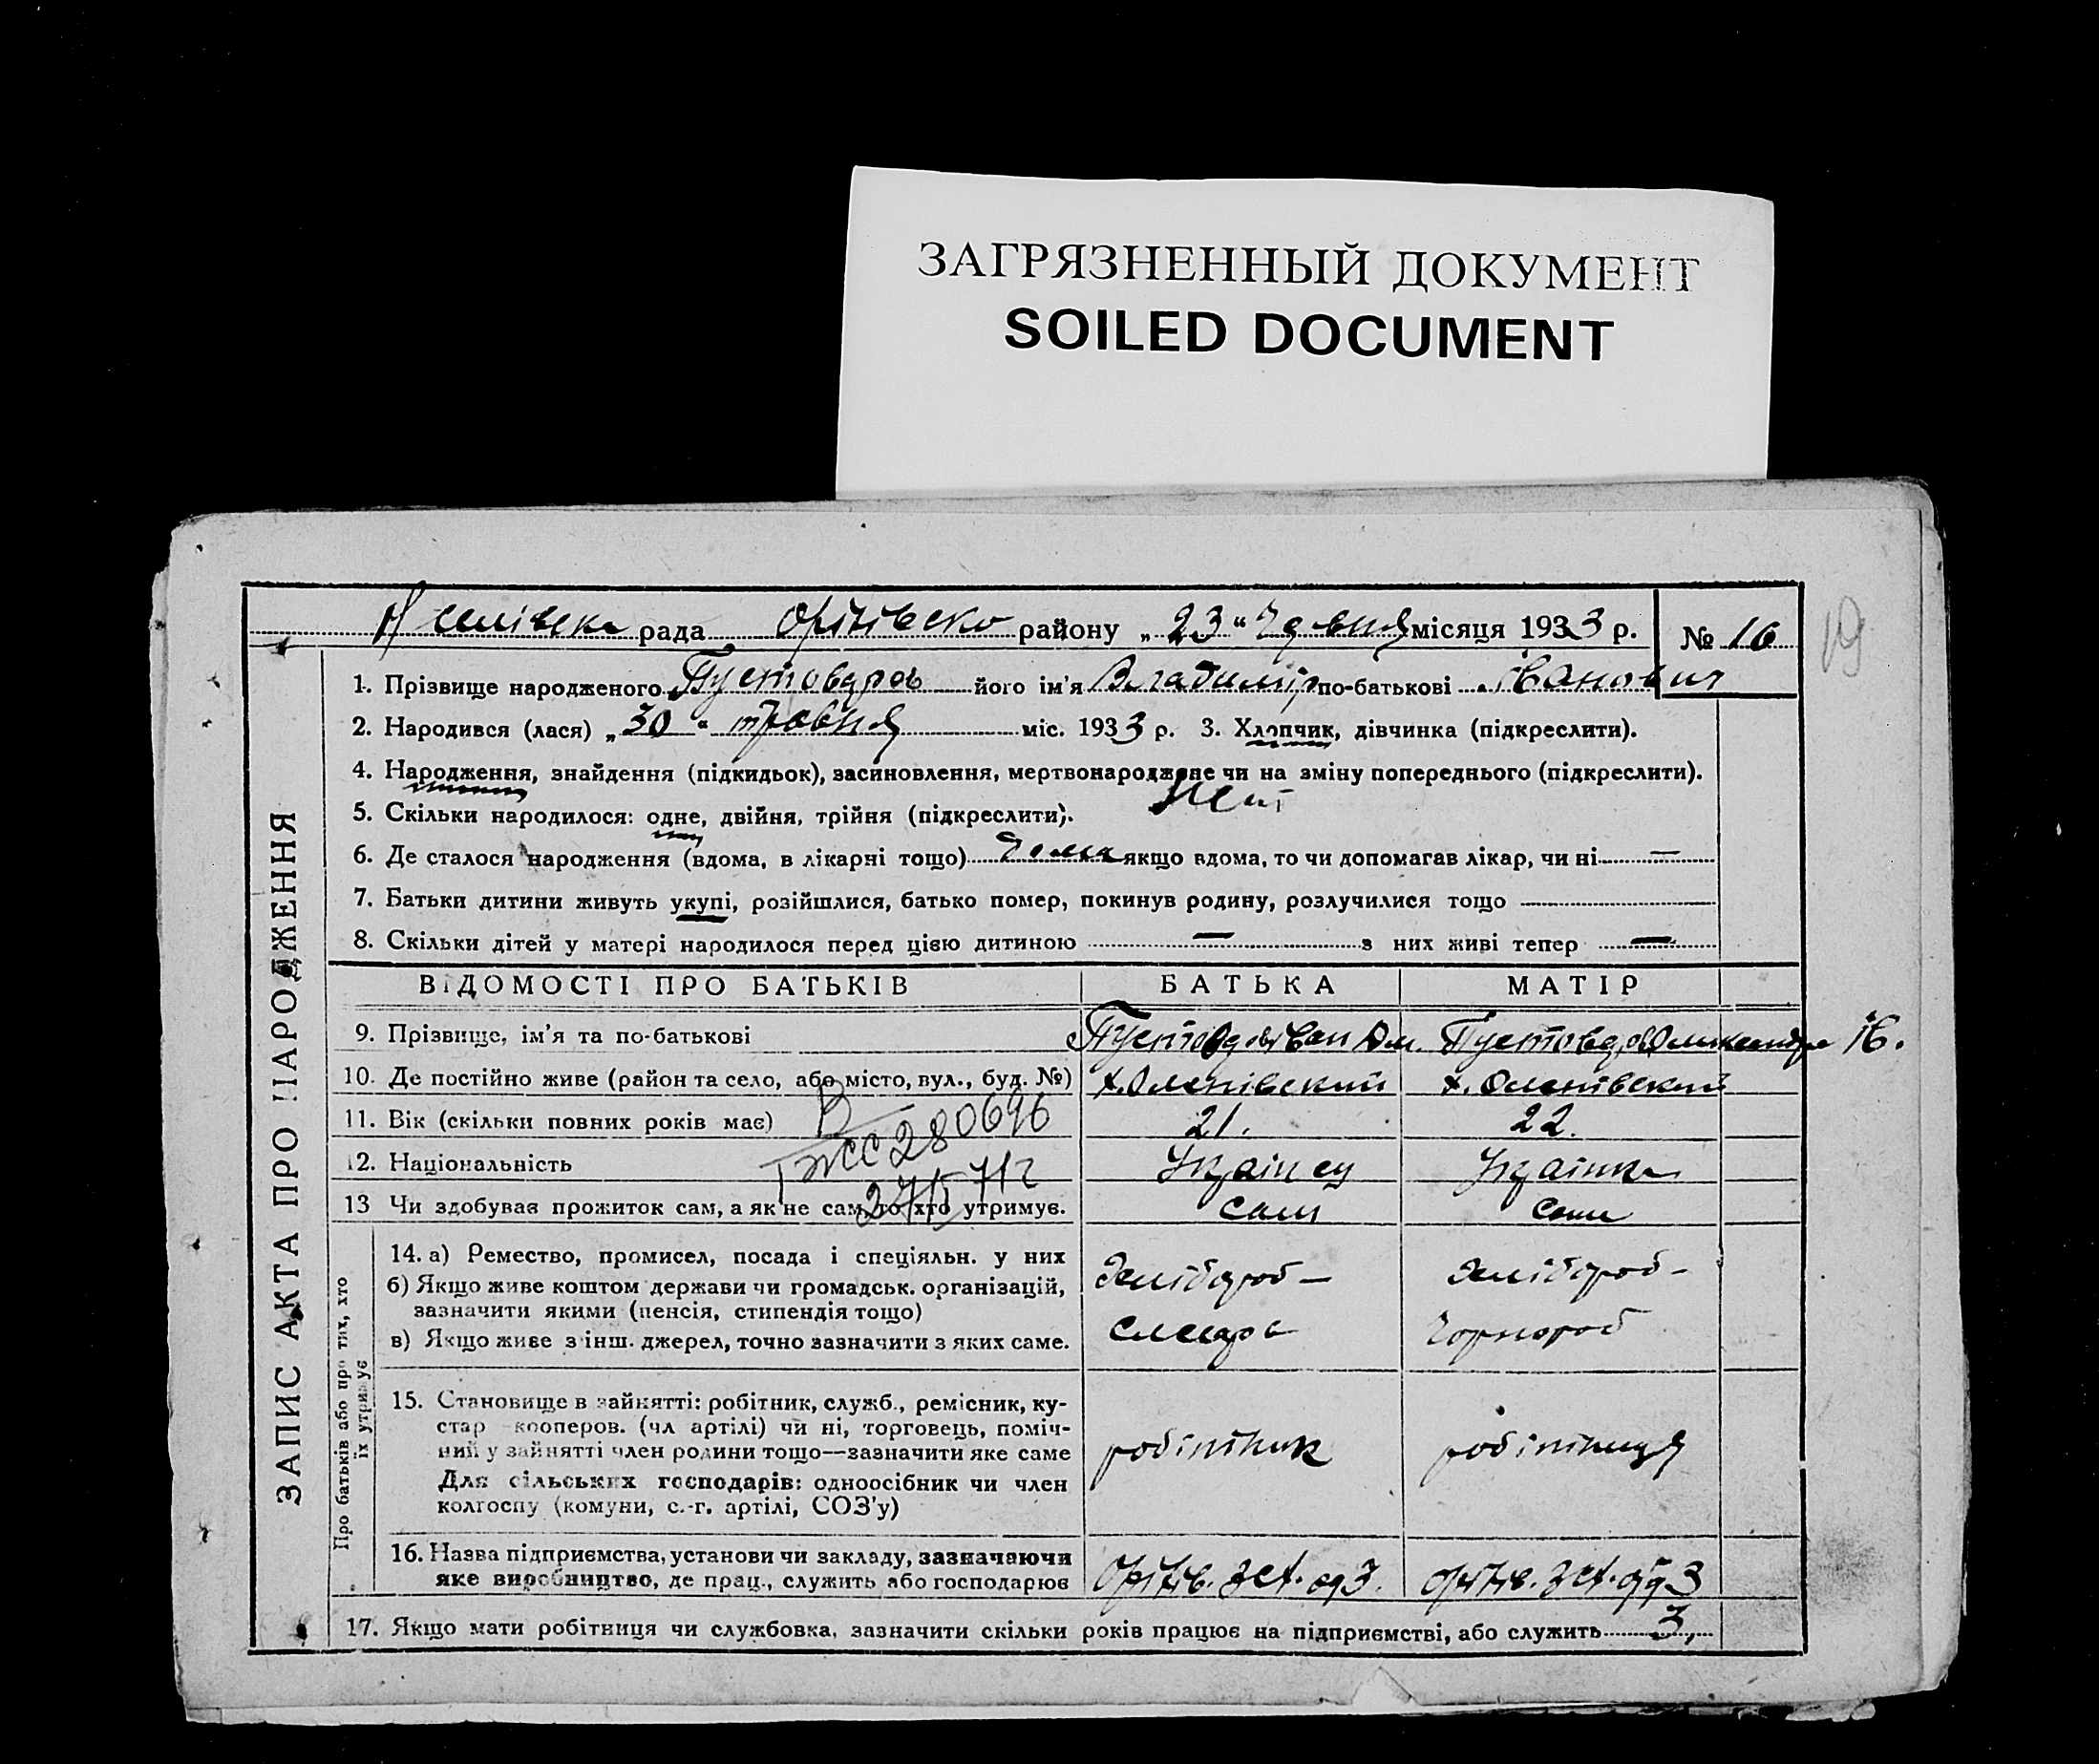 ЗАГРЯЗНЕННЫЙ ДОКУМЕНТ
SOILED DOCUMENT
19
рада району „ 23 “ місяця 1933 р. № 16
ЗАПИС АКТА ПРО НАРОДЖЕННЯ
1. Прізвище народженого його ім'я Владимір по-батькові Іванович
2. Народився (лася) „ 30 “ травня міс. 1933 р. 3. Хлопчик, дівчинка (підкреслити).
4. Народження, знайдення (підкидьок), засиновлення, мертвонароджене чи на зміну попереднього (підкреслити).
нет
5. Скільки народилося: одне, двійня, трійня (підкреслити).
6. Де сталося народження (вдома, в лікарні тощо) дома якщо вдома, то чи допомагав лікар, чи ні —
7. Батьки дитини живуть укупі, розійшлися, батько помер, покинув родину, розлучилися тощо
8. Скільки дітей у матері народилося перед цією дитиною — з них живі тепер —
ВІДОМОСТІ ПРО БАТЬКІВ БАТЬКА МАТІР
9. Прізвище, ім'я та по-батькові Ів.
10. Де постійно живе (район та село, або місто, вул., буд. №) х. Оленівский х. Оленівский
11. Вік (скільки повних років має) 21. 22.
280696
12. Національність Українец Українка
13 Чи здобував прожиток сам, а як не сам, то хто утримує. сам сама
Про батьків або про тих, хто їх утримує
14. а) Ремество, промисел, посада і спеціяльн. у них
б) Якщо живе коштом держави чи громадськ. організацій,
зазначити якими (пенсія, стипендія тощо)
в) Якщо живе з інш. джерел, точно зазначити з яких саме.
слесарь чорнороб
15. Становище в зайнятті: робітник, служб., ремісник, ку-
стар кооперов. (чл артілі) чи ні, торговець, поміч-
ний у зайнятті член родини тощо—зазначити яке саме
Для сільських господарів: одноосібник чи член
колгоспу (комуни, с.-г. артілі, СОЗ'у)
робітник робітниця
16. Назва підприємства, установи чи закладу, зазначаючи
яке виробництво, де прац., служить або господарює
17. Якщо мати робітниця чи службовка, зазначити скільки років працює на підприємстві, або служить 3,